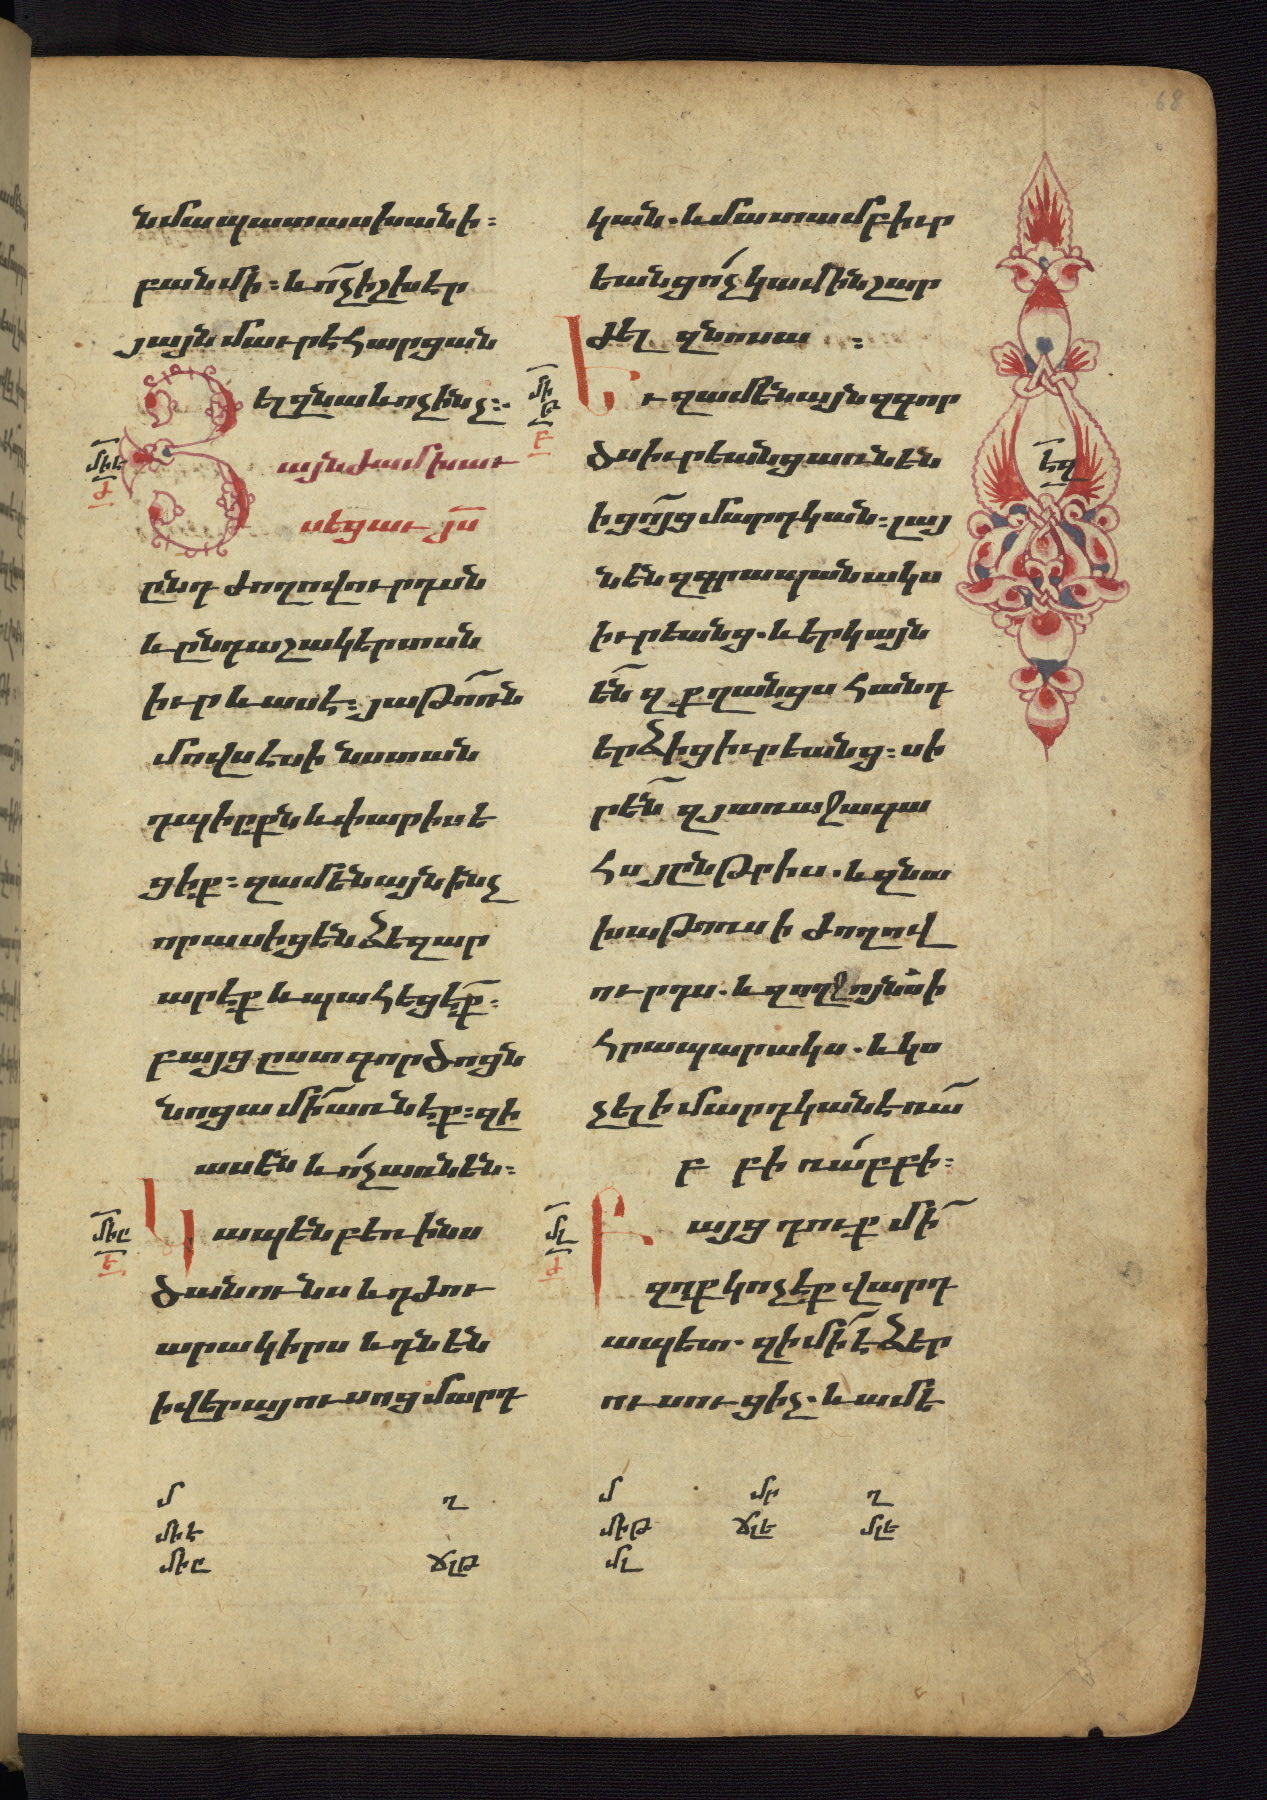 68
նմա պատասխանի ։
բան մի ։ և ոչ իշխեր
յայնմ աւրէ հարցան
ել զնա և ոչինչ ։
Յայնժամ խաւ
սեցաւ յս
ընդ ժողովուրդսն
և ընդ աշակերտսն
իւր և ասէ ։ յաթոռն
մովսէսի նստան
դպիրքն և փարիսե
ցիք ։ զամենայն ինչ
որ ասիցեն ձեզ առ
արեք և պահեցեք ։
բայց ըստ գործոցն
նոցա մի առնեք ։ զի
ասեն և ոչ առնեն ։
Կապեն բեռինս
ծանունս և դժու
արակիրս և դնեն
ի վերայ ուսոց մարդ
կան . և մատամբ իւր
եանց ոչ կամին շար
ժել զնոսա ։
Եւ զամենայն զգոր
ծս իւրեանց առնեն
ի ցոյց մարդկան ։ լայ
նեն զգրապանակս
իւրեանց . և երկայն
են զքղանցս հանդ
երձից իւրեանց ։ սի
րեն զյառաջագա
հս յընթրիս . և զնա
խաթոռս ի ժողով
ուրդս . և զողջոյնսն ի
հրապարակս . և կո
չել ի մարդկանե ռա
բ բի ռաբբի ։
Բայց դուք մի
զոք կոչեք վարդ
ապետ . զի մի է ձեր
ուսուցիչ . և ամե
միե
ժ
միը
ե
մի
թ
բ
մլ
ժ
եզ
մ ղ
միե
միը ճլթ
մ մր ղ
միթ ճլե մլե
մլ